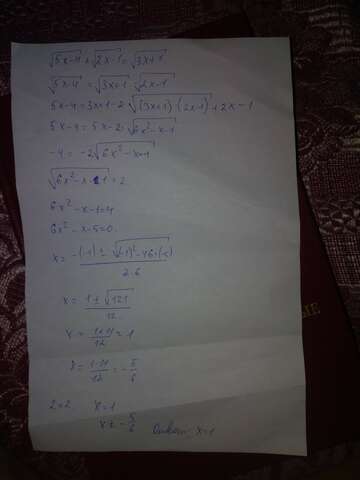 √5x-4 + √2x-1 = √3x+1
√5x-4 = √3x+1 - √2x-1
5x-4 = 3x+1-2·√(3x+1)·(2x-1) + 2x-1
5x-4 = 5x-2·√6x²-x-1
-4 = -2√6x²-x-1
√6x²-x-1 = 2
6x²-x-1=4
6x²-x-5=0
x = -(-1) ± √(-1)²-4·6·(-5) / 2·6
x = 1 ± √121 / 12
x = 1+11 / 12 = 1
x = 1-11 / 12 = -5/6
2=2 x=1
x ≠ -5/6 Ответ: x=1
ЫЕ